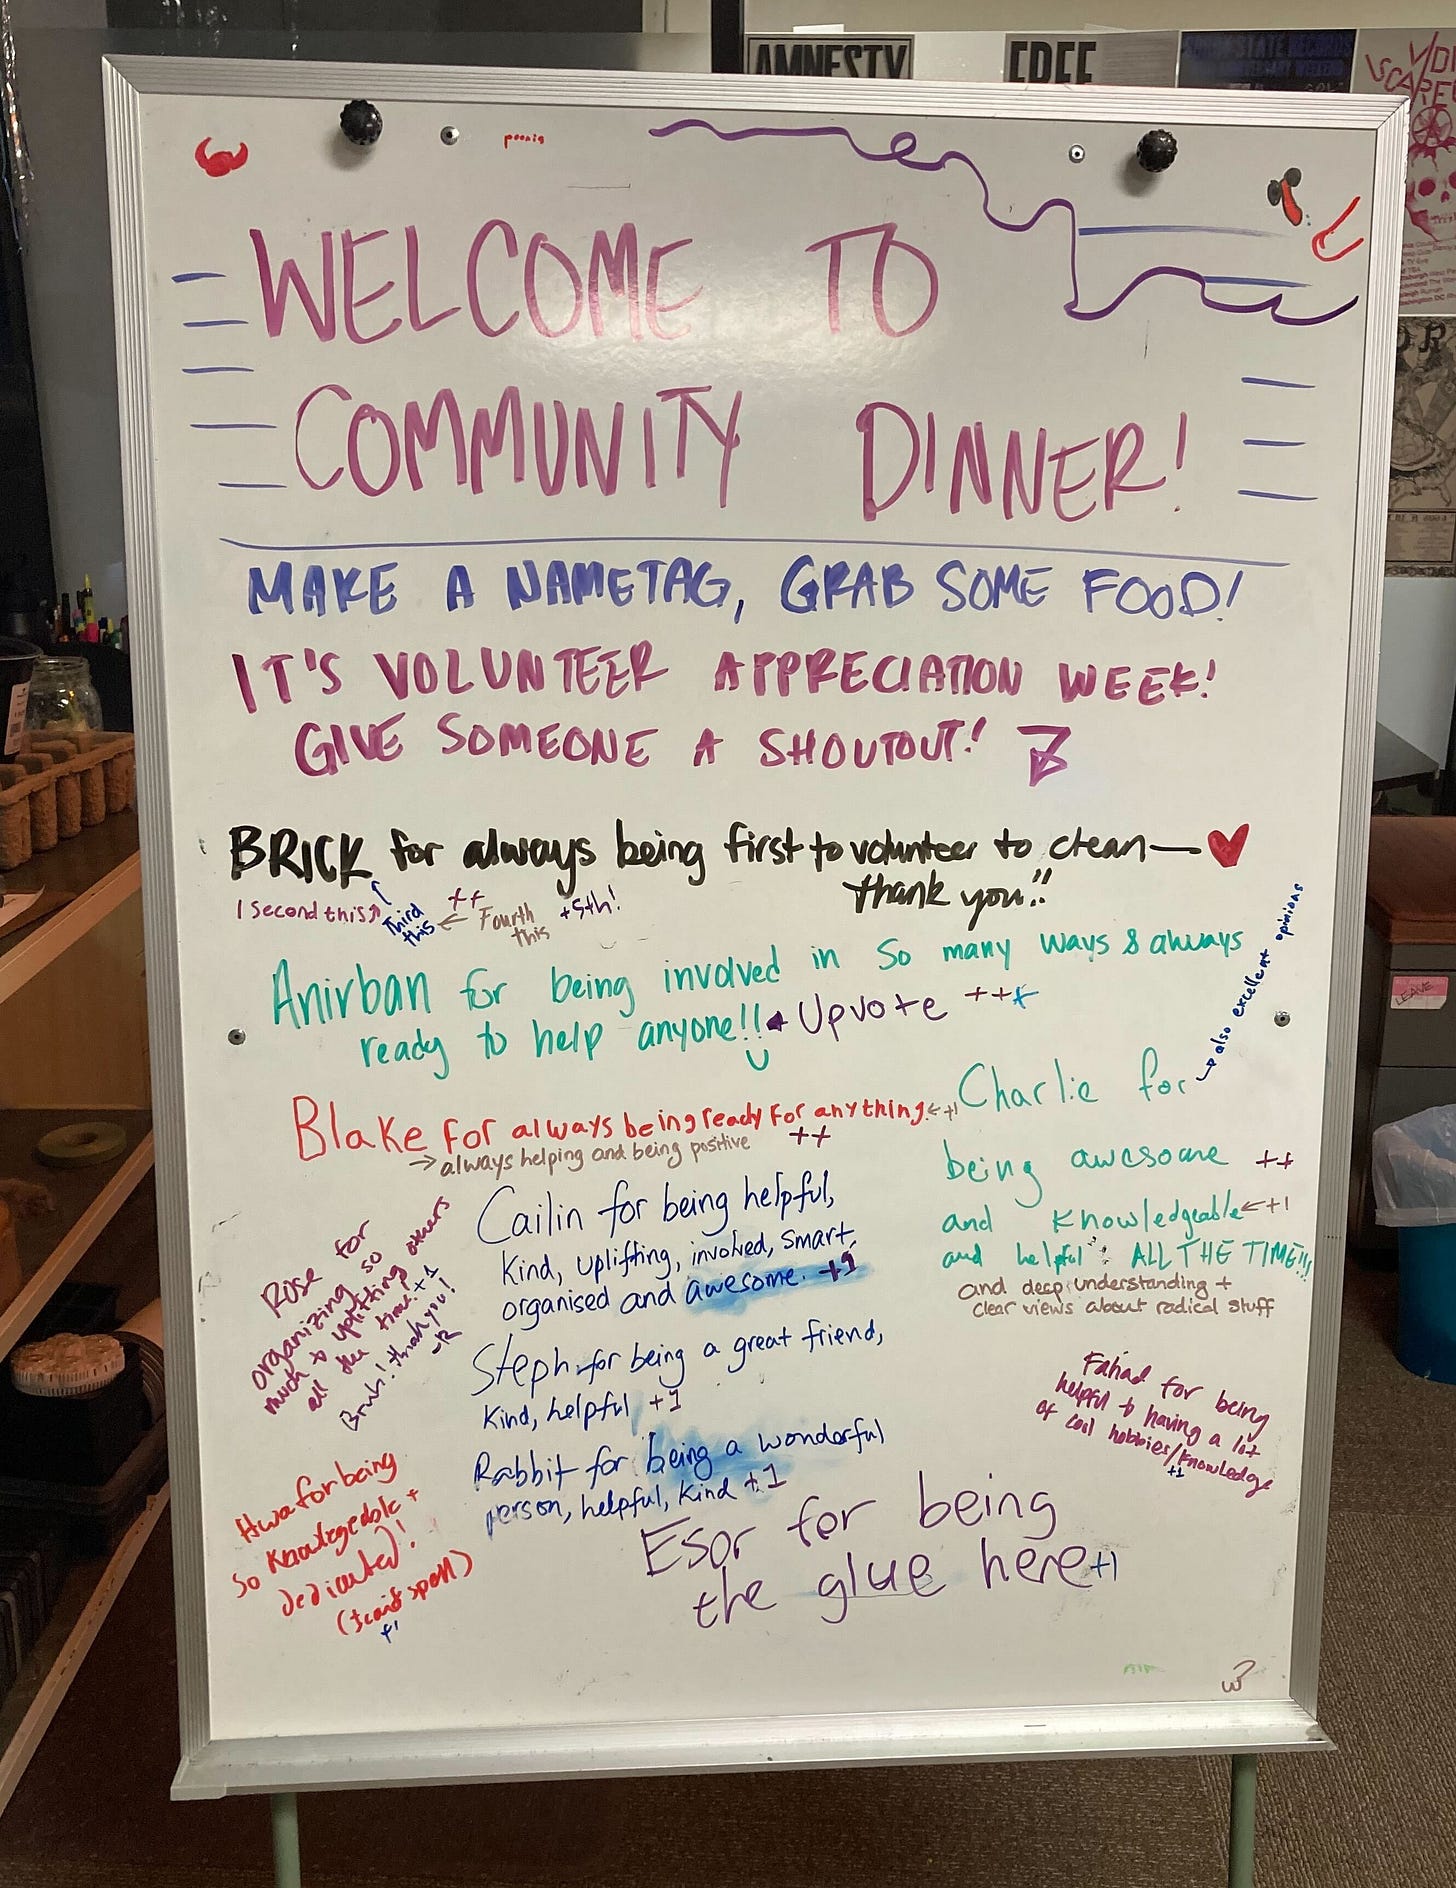 AMNESTY
FREE
poonis
WELCOME TO
COMMUNITY DINNER!
MAKE A NAMETAG, GRAB SOME FOOD!
IT'S VOLUNTEER APPRECIATION WEEK!
GIVE SOMEONE A SHOUTOUT!
BRICK for always being first to volunteer to clean—
thank you!!
I second this
Third
this
++
Fourth
this
+5th!
Anirban for being involved in so many ways & always
ready to help anyone!!
Upvote +++
Charlie for
also excellent opinions
being awesome ++
and knowledgeable +1
and helpful ALL THE TIME!!!
and deep understanding +
clear views about radical stuff
Blake for always being ready for anything +1
++
always helping and being positive
Cailin for being helpful,
Kind, uplifting, involved, smart,
organised and awesome. +1
Rose for
organizing so
much & uplifting others
all the time! +1
Bruh! thank you!
-R
Steph for being a great friend,
Kind, helpful +1
Rabbit for being a wonderful
person, helpful, kind +1
Fahad for being
helpful & having a lot
of cool hobbies/knowledge
+1
Hwa for being
so knowlegedable +
dedicated!
(I cant spell)
+1
Esor for being
the glue here +1
LEAVE